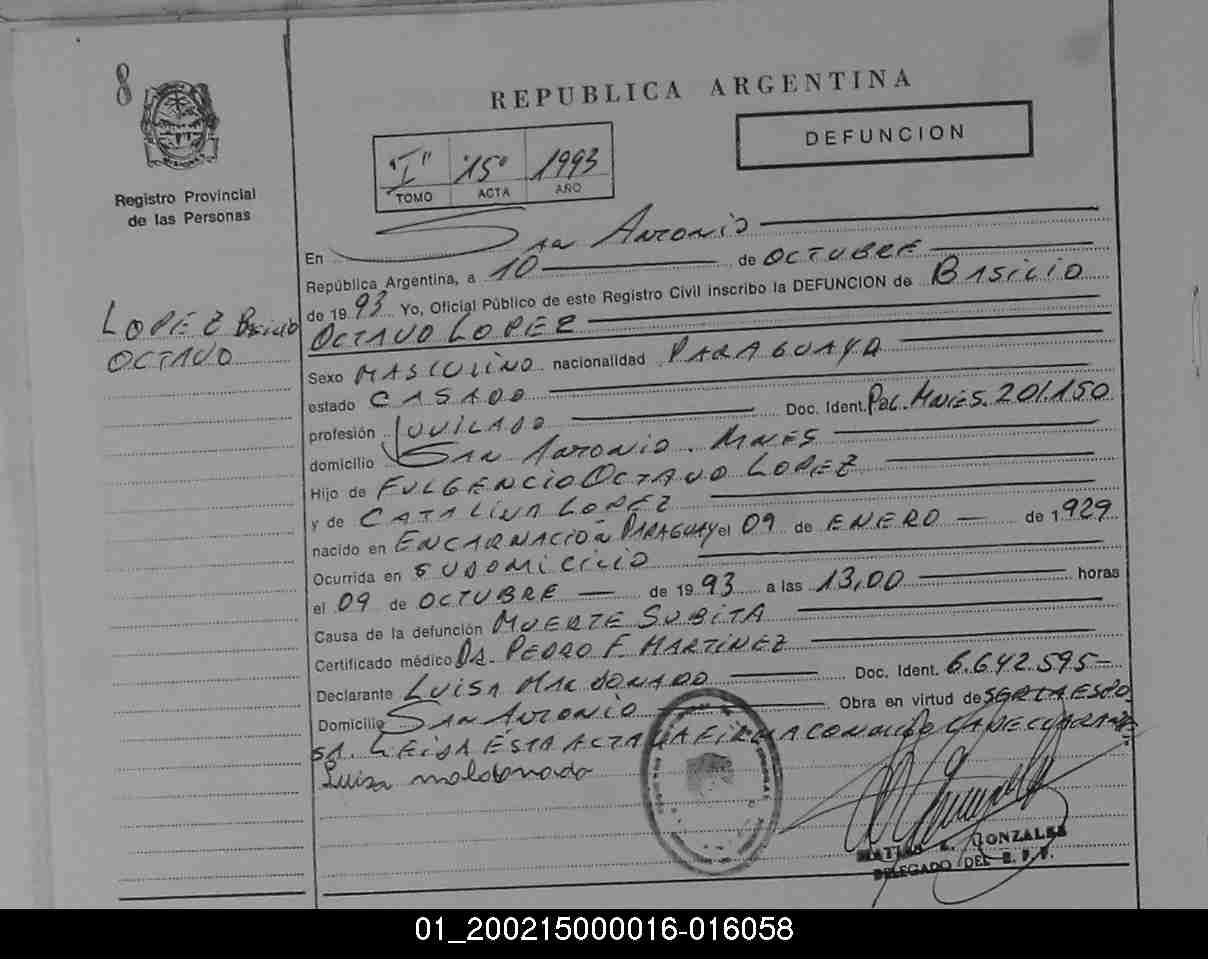 8
REPUBLICA ARGENTINA
DEFUNCION
"I" 15º 1993
TOMO ACTA AÑO
Registro Provincial
de las Personas
LOPEZ BASILIO
OCTAVO
En San Antonio
República Argentina, a 10 de OCTUBRE
de 1993 Yo, Oficial Público de este Registro Civil inscribo la DEFUNCION de BASILIO
OCTAVO LOPEZ
Sexo MASCULINO nacionalidad PARAGUAYA
estado CASADO
profesión JUVILADO Doc. Ident. Pol. Mnes. 201.150
domicilio SAN ANTONIO. MNES
Hijo de FULGENCIO OCTAVO LOPEZ
y de CATALINA LOPEZ
nacido en ENCARNACIÓN PARAGUAY el 09 de ENERO de 1929
Ocurrida en SU DOMICILIO
el 09 de OCTUBRE de 1993 a las 13,00 horas
Causa de la defunción MUERTE SUBITA
Certificado médico DR. PEDRO F. MARTINEZ
Declarante LUISA MALDONADO Doc. Ident. 6.642.595
Domicilio SAN ANTONIO Obra en virtud de SER LA ESPO
SA. LEIDA ESTA ACTA LA FIRMA CONMIGO LA DECLARANTE
Luisa maldonado
MATIAS GONZALEZ
DELEGADO DEL R.P.P.
01_200215000016-016058